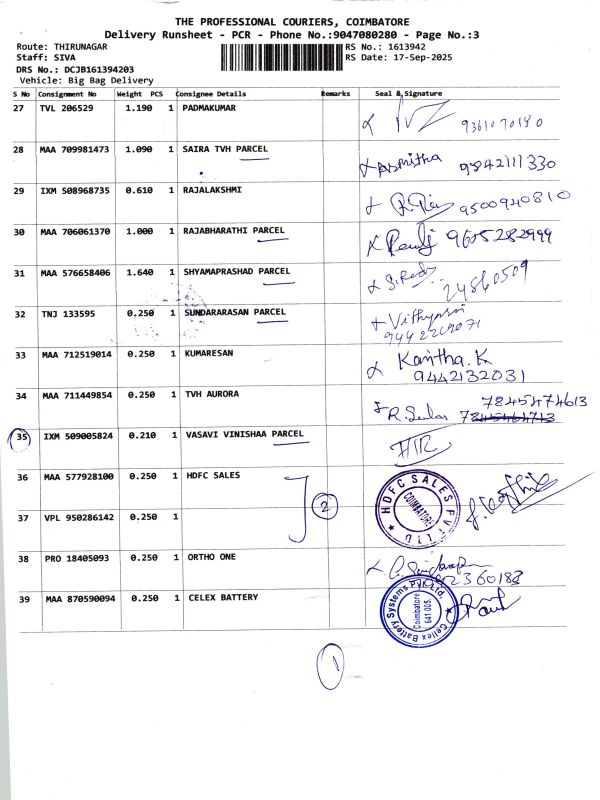 THE PROFESSIONAL COURIERS, COIMBATORE
Delivery Runsheet - PCR - Phone No.:9047080280 - Page No.:3
Route: THIRUNAGAR RS No.: 1613942
Staff: SIVA RS Date: 17-Sep-2025
DRS No.: DCJB161394203
Vehicle: Big Bag Delivery
S No Consignment No Weight PCS Consignee Details Remarks Seal & Signature
27 TVL 206529 1.190 1 PADMAKUMAR
9361070180
28 MAA 709981473 1.090 1 SAIRA TVH PARCEL
Asmitha 9842111330
29 IXM 508968735 0.610 1 RAJALAKSHMI
9500940810
30 MAA 706061370 1.000 1 RAJABHARATHI PARCEL
9605282999
31 MAA 576658406 1.640 1 SHYAMAPRASAD PARCEL
24860509
32 TNJ 133595 0.250 1 SUNDARARASAN PARCEL
33 MAA 712519014 0.250 1 KUMARESAN
Kantha.K
9442132031
34 MAA 711449854 0.250 1 TVH AURORA
78454 74613
35 IXM 509005824 0.210 1 VASAVI VINISHAA PARCEL
36 MAA 577928100 0.250 1 HDFC SALES
HDFC SALES PVT LTD
COIMBATORE
2
37 VPL 950286142 0.250 1
38 PRO 18405093 0.250 1 ORTHO ONE
39 MAA 870590094 0.250 1 CELEX BATTERY
Cellex Battery Systems Pvt. Ltd.
Coimbatore
641 005.
1